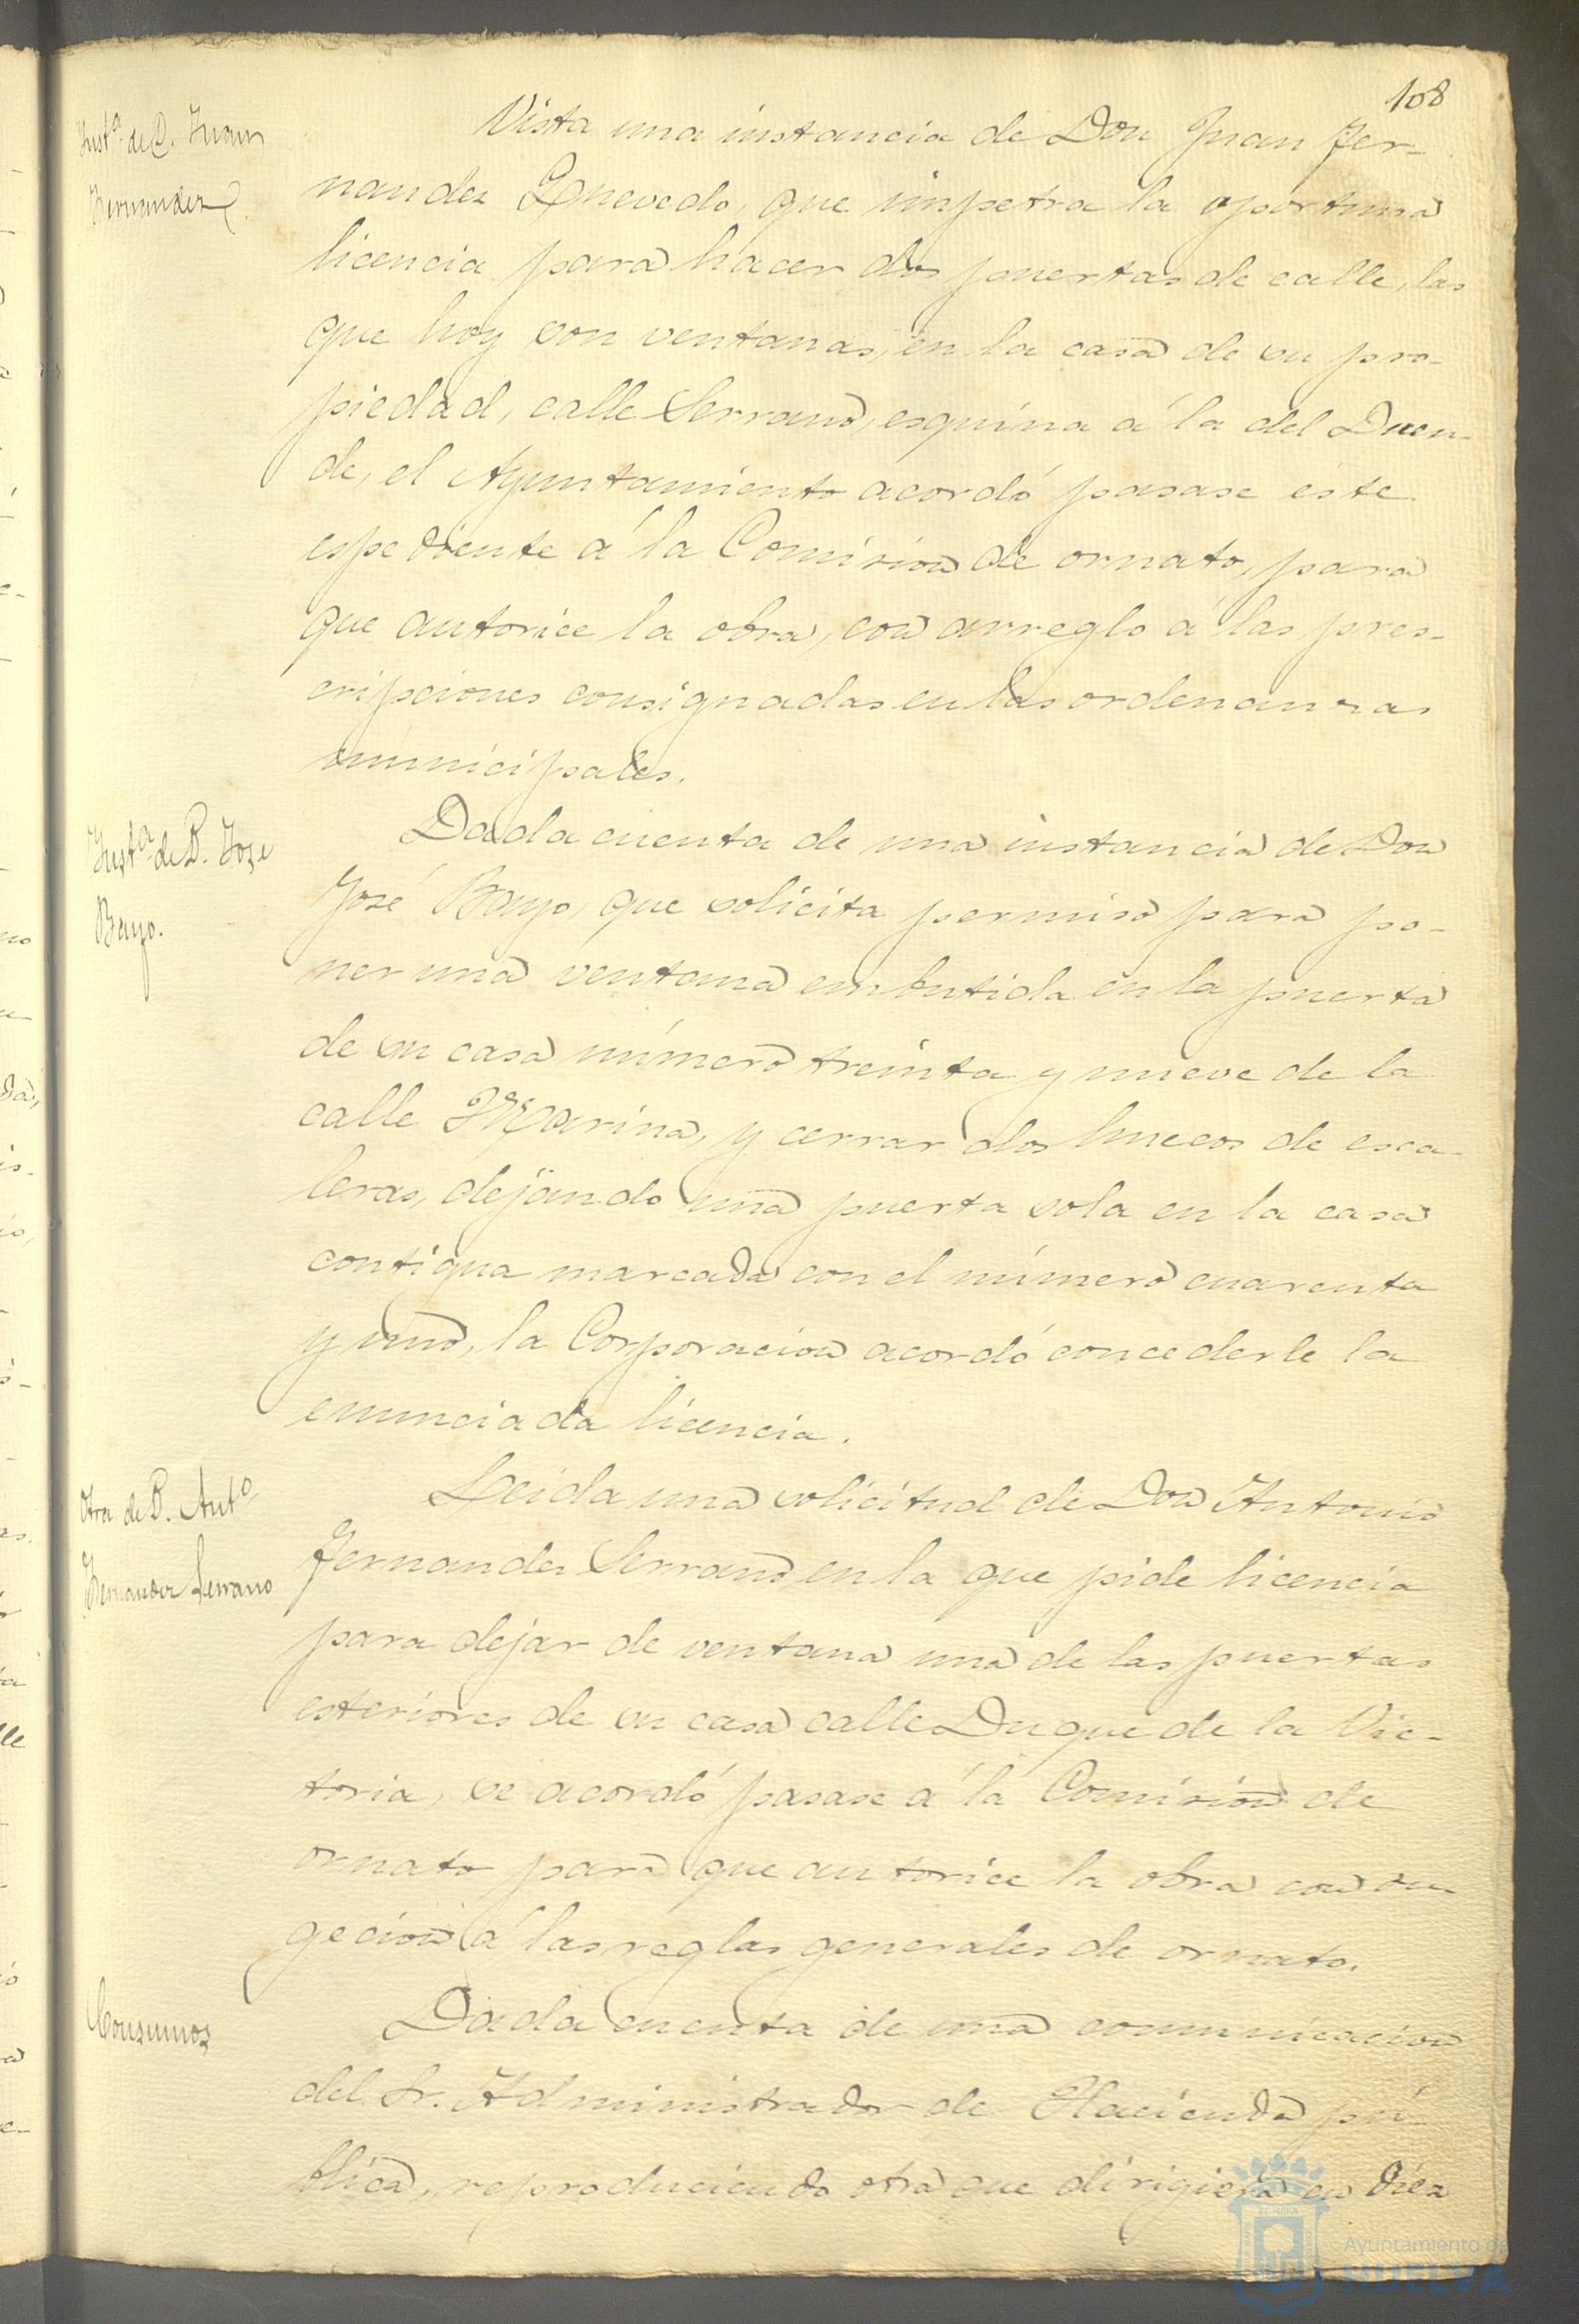 108
Inst.ª de D. Juan
Fernandez
Vista una instancia de Don Juan Fer-
nandez Quevedo, que impetra la oportuna
licencia para hacer dos puertas de calle, las
que hoy son ventanas, en la casa de su pro-
piedad, calle Serrano, esquina á la del Duen-
de, el Ayuntamiento acordó pasase este
espediente á la Comision de ornato, para
que autorice la obra, con arreglo á las pres-
cripciones consignadas en las ordenanzas
municipales.
Inst.ª de D. Jose
Bayo.
Dada cuenta de una instancia de Don
José Bayo, que solicita permiso para po-
ner una ventana embutida en la puerta
de su casa número treinta y nueve de la
calle Marina, y cerrar dos huecos de esca-
leras, dejando una puerta sola en la casa
contigua marcada con el número cuarenta
y uno, la Corporacion acordó concederle la
enunciada licencia.
Otra de D. Ant.º
Fernandez Serrano
Leida una solicitud de Don Antonio
Fernandez Serrano, en la que pide licencia
para dejar de ventana una de las puertas
esteriores de su casa calle Duque de la Vic-
toria, se acordó pasase á la Comision de
ornato para que autorice la obra con su-
gecion á las reglas generales de ornato.
Consumos
Dada cuenta de una comunicacion
del Sr. Administrador de Hacienda pú-
blica, reproduciendo otra que dirigiera en diez
Ayuntamiento de
HUELVA